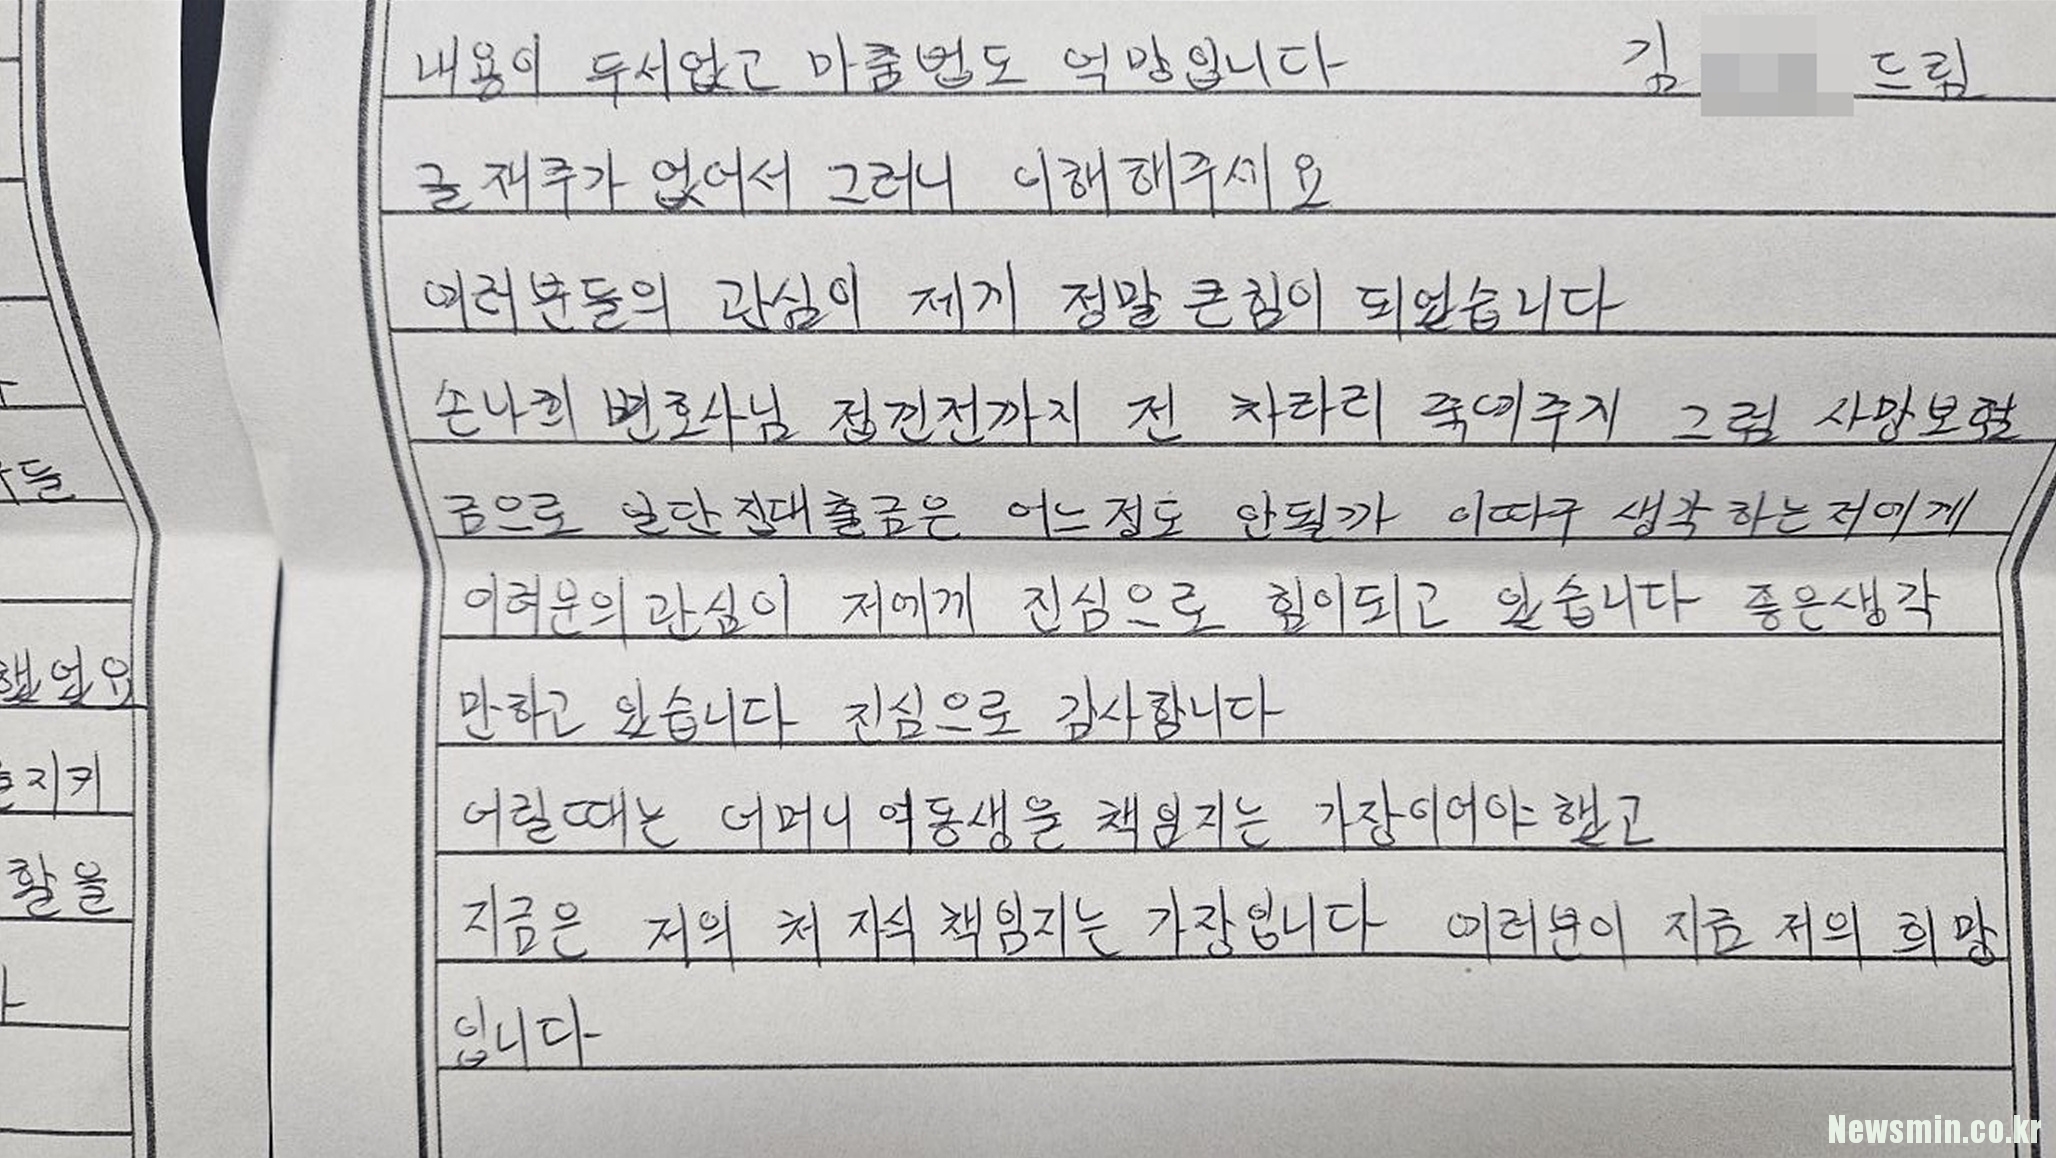 내용이 두서없고 마춤법도 엉망입니다 김 드림
글 재주가 없어서 그러니 이해해주세요
여러분들의 관심이 제게 정말 큰힘이 되었습니다
손나희 변호사님 접견전까지 전 차라리 죽여주지 그럼 사망보험
금으로 일단 전대출금은 어느정도 안될까 이따구 생각하는저에게
여려분의 관심이 저에게 진심으로 힘이되고 있습니다 좋은생각
만하고 있습니다 진심으로 감사합니다
어릴때는 어머니 여동생을 책임지는 가장이어야 했고
지금은 저의 처 자식 책임지는 가장입니다 여러분이 지금 저의 희망
입니다
들
했었요
지키
활을
Newsmin.co.kr